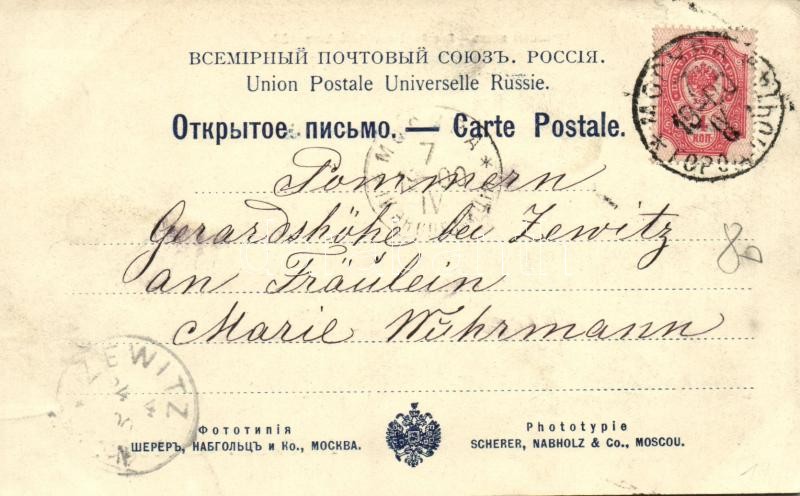 ВСЕМІРНЫЙ ПОЧТОВЫЙ СОЮЗЪ. РОССІЯ.
Union Postale Universelle Russie.
Открытое письмо. — Carte Postale.
КОП
МОСКВА
7
IV
Pommern
Gerardshöhe bei Zewitz
an Fräulein
Marie Wuhrmann
80
ZEWITZ
24
4
Фототипія
ШЕРЕРЪ, НАБГОЛЬЦЪ и Ко., МОСКВА.
Phototypie
SCHERER, NABHOLZ & Co., MOSCOU.